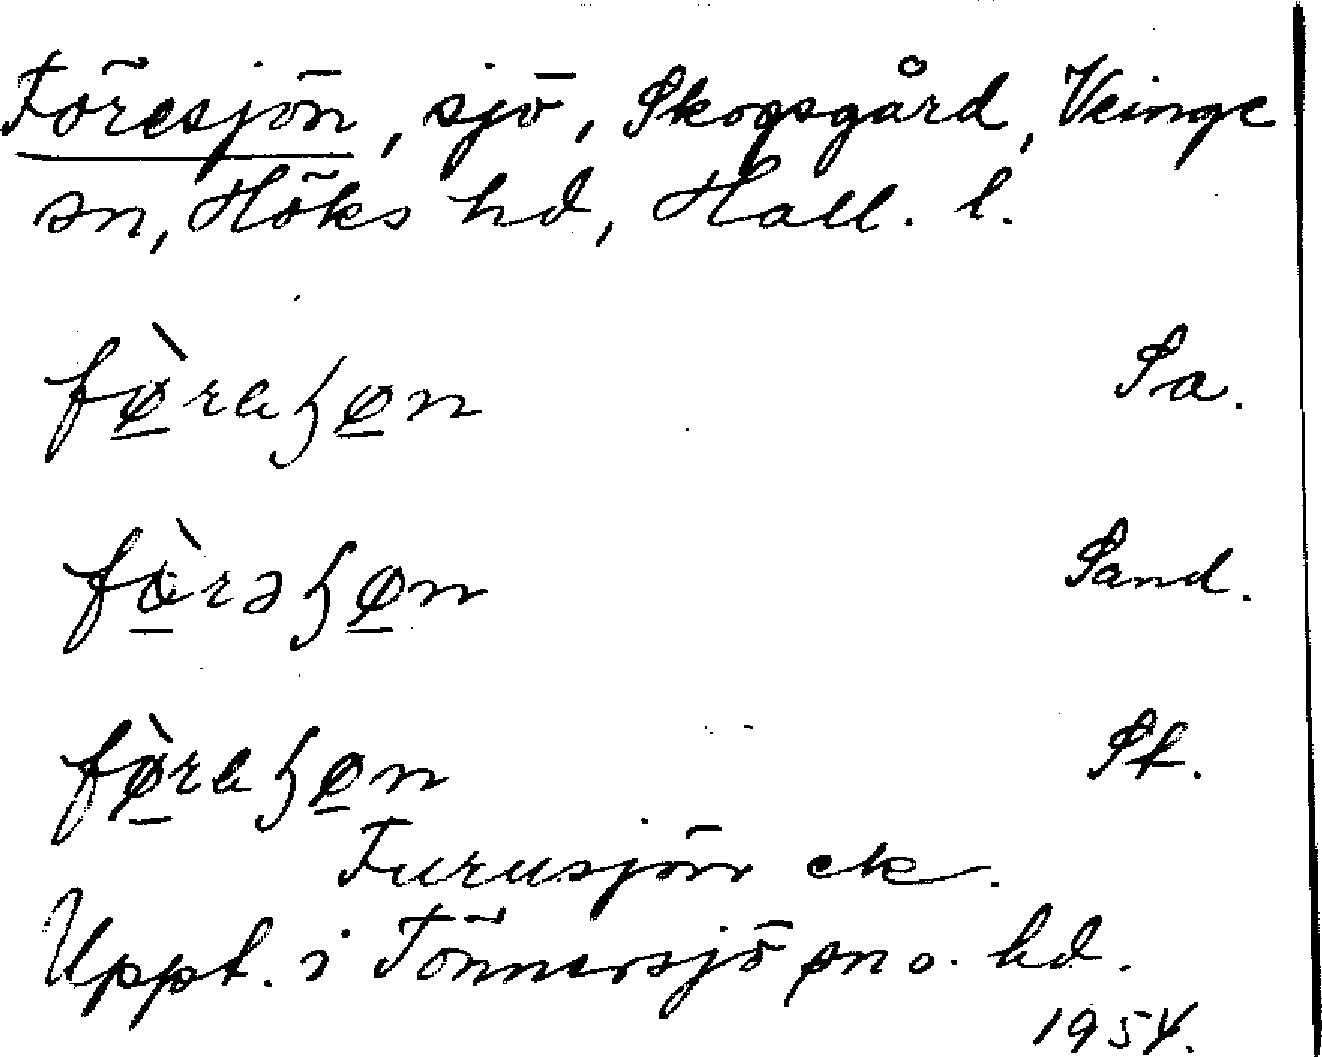 Föresjön, sjö, Skogsgård, Veinge
sn, Höks hd, Hall. l.
fø̱̀raɧø̱n Sa.
fö̱̀rəɧø̱n Sand.
fø̱̀raɧø̱n St.
Furusjön ek.
Uppt. i Tönnersjö sn o. hd.
1954.